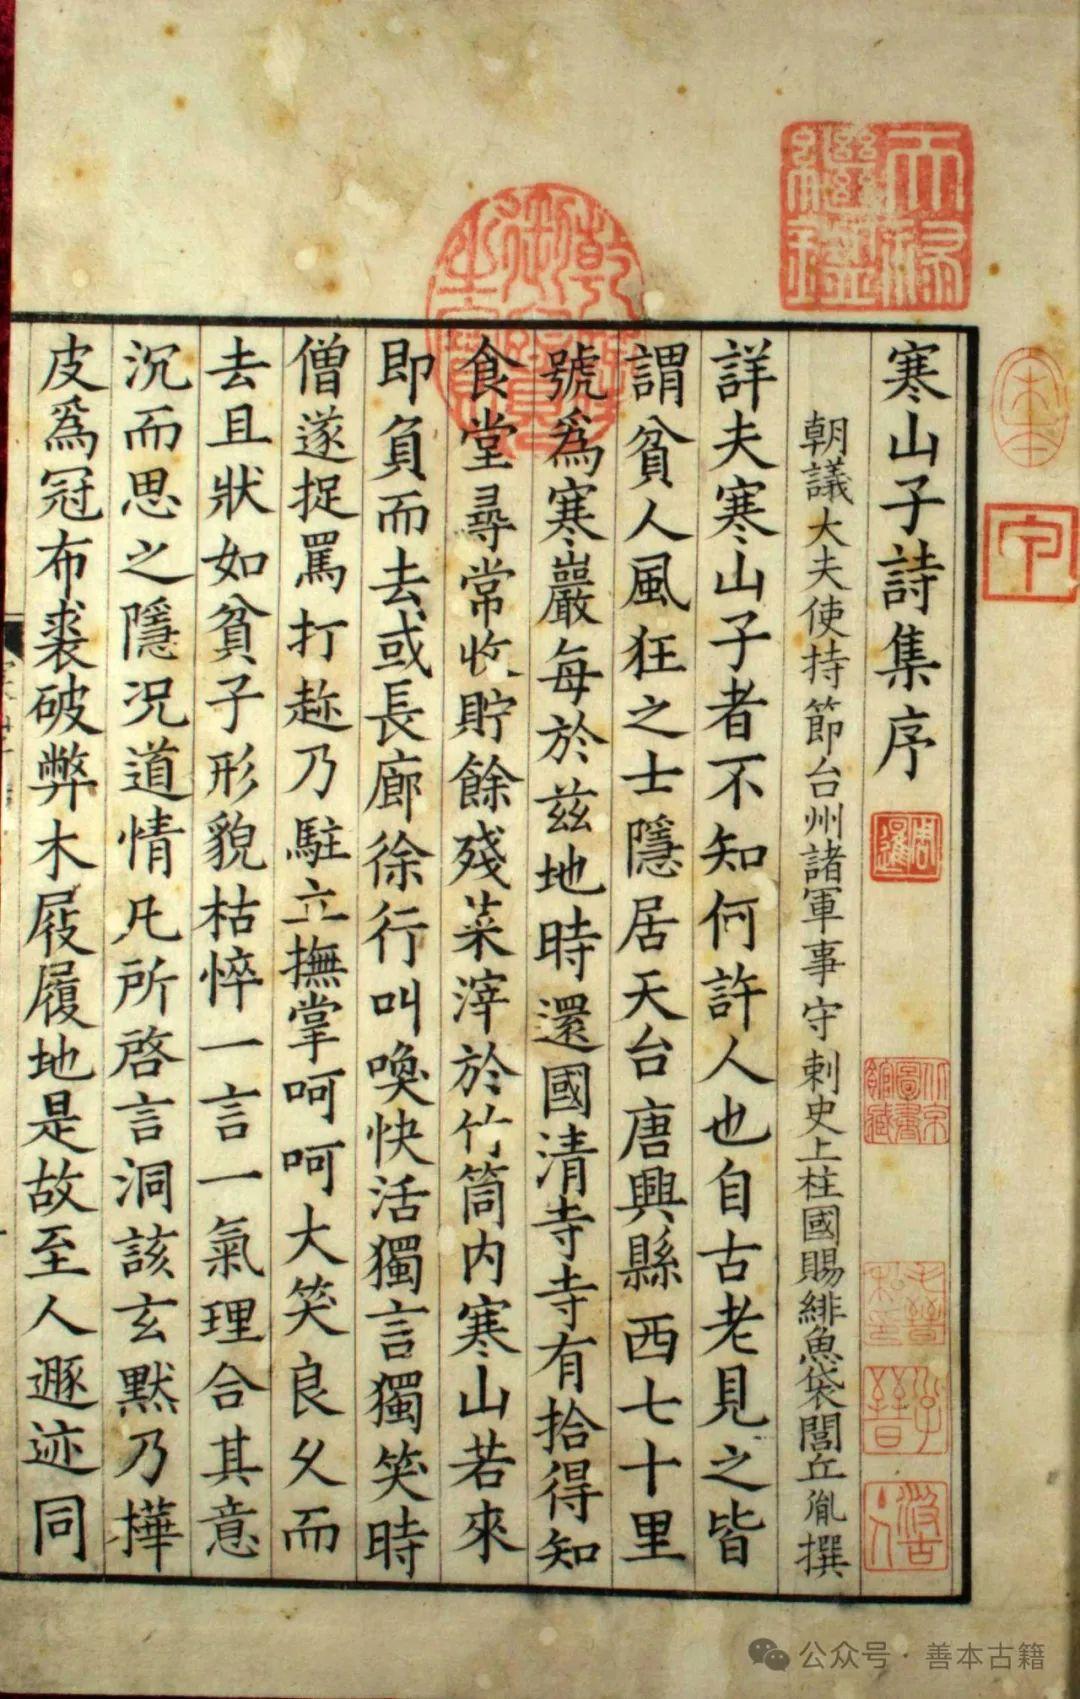 寒山子詩集序
朝議大夫使持節台州諸軍事守刺史上柱國賜緋魚袋閭丘胤撰
詳夫寒山子者不知何許人也自古老見之皆
謂貧人風狂之士隱居天台唐興縣西七十里
號爲寒巖每於茲地時還國清寺寺有拾得知
食堂尋常收貯餘殘菜滓於竹筒内寒山若來
即負而去或長廊徐行叫喚快活獨言獨笑時
僧遂捉罵打趂乃駐立撫掌呵呵大笑良久而
去且狀如貧子形貌枯悴一言一氣理合其意
沉而思之隱况道情凡所啓言洞該玄默乃樺
皮爲冠布裘破弊木屐履地是故至人遯迹同
天祿繼鑑
乾隆御覽之寶
宋本
周暹
北京圖書館藏
毛晉私印
子晉
公众号·善本古籍